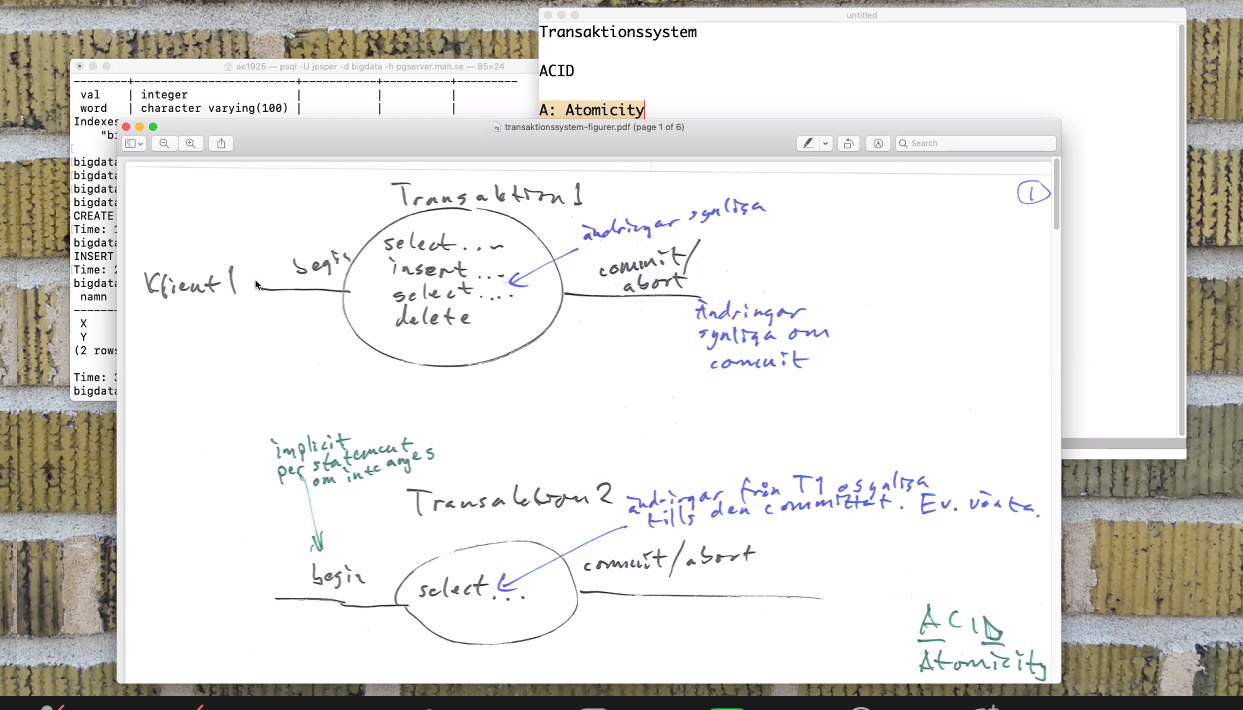 untitled
Transaktionssystem
ACID
A: Atomicity
ae1925 — psql -U jesper -d bigdata -h pgserver.mah.se — 85×24
--------+------------------------+-----------+----------+---------
val | integer | | |
word | character varying(100) | | |
Indexes
"bi
bigdata
bigdata
bigdata
bigdata
CREATE
Time: 1
bigdata
INSERT
Time: 2
bigdata
namn
X
Y
(2 rows
Time: 3
bigdata
transaktionssystem-figurer.pdf (page 1 of 6)
Search
1
Transaktion 1
ändringar synliga
select...
begin
insert...
commit/
abort
Klient 1
select....
delete
Ändringar
synliga om
commit
implicit
per statement
om inte anges
Transaktion 2
ändringar från T1 osynliga
tills den committat. Ev. vänta.
begin
select...
commit/abort
ACID
Atomicity